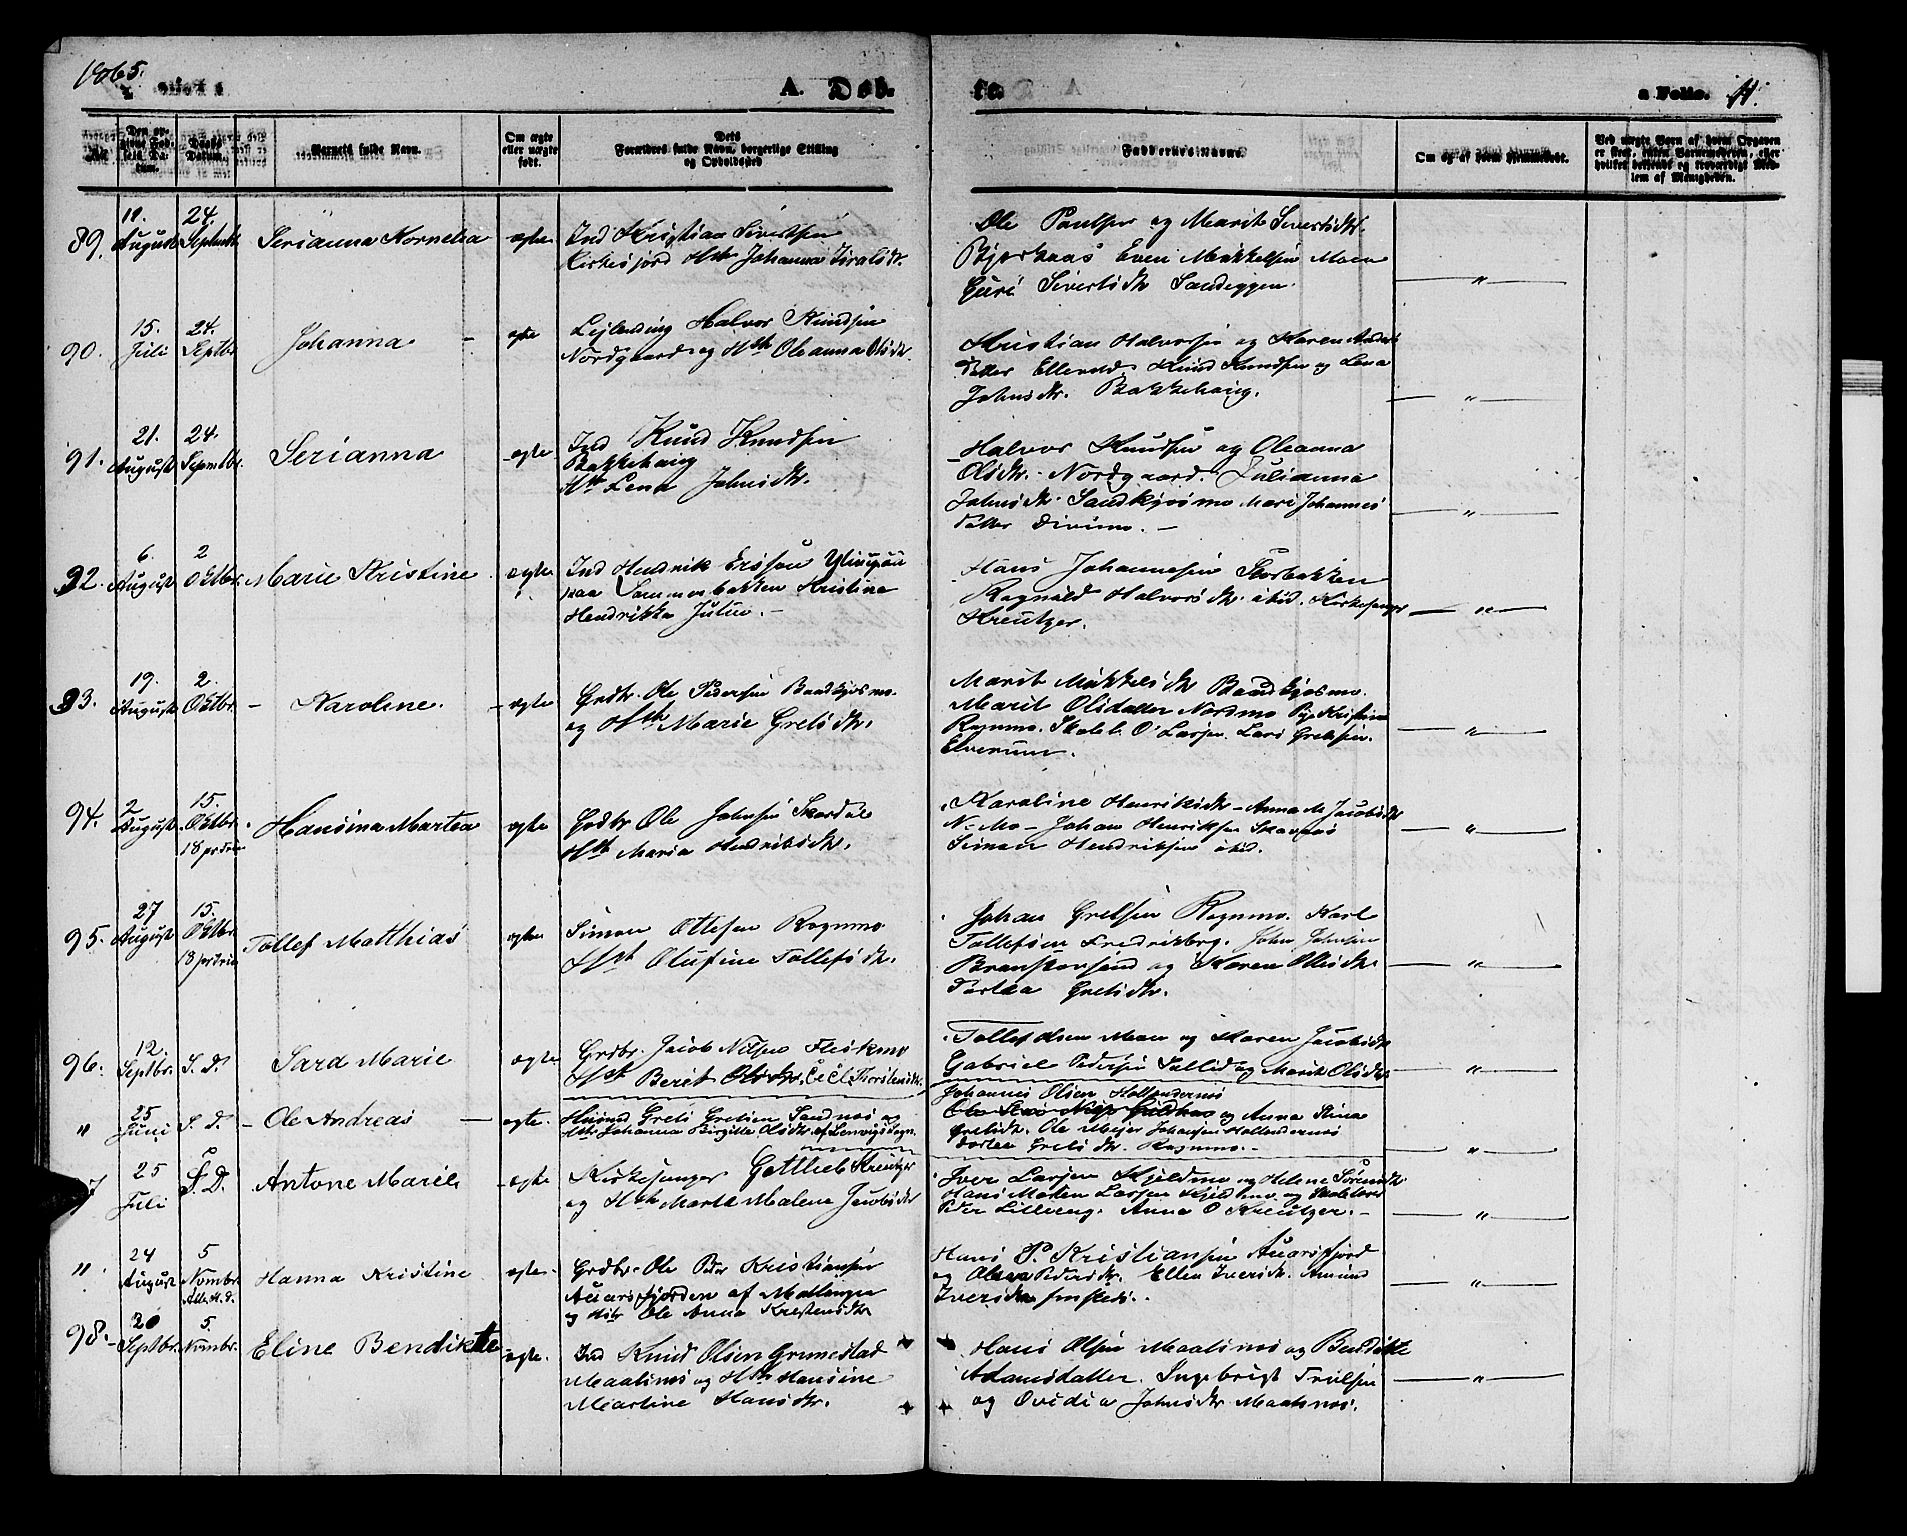 1865.
A. Døb-
te.
a Folio. 11.
Den or-
Fød-
Da-
tum.
Daabs
Datum.
Barnets fulde Navn.
Om ægte
eller uægte
født.
Dets
Forældres fulde Navn, borgerlige Stilling
og Opholdssted
Faddernes Navne.
Om og af hvem hjemmedøbt.
Ved uægte Børn af hvem Opgaven
er skeet, enten Barnemoderen, eller
hvilket bekjendt og troværdigt Med-
lem af Menigheden.
89. 11. August 24. Septembr Serianna Kornelia ægte Ind Kristian Sivertsen
Kirkesfjord Hst Johanna Israelsdtr.
Ole Paulsen og Marit Sivertsdtr.
Bjorkaas Even Mikkelsen Moen
Guri Sivertsdtr Sandeggen.
90. 15. Juli 24. Septbr Johanna ægte Lejlending Halvor Knudsen
Nordgaard og Hst Oleanna Olsdtr.
Kristian Halvorsen og Karen Anders
datter Knud Knudsen og Lena
Johnsdtr. Bakkehaug.
91. 21. August 24. Sepmtbr. Serianna ægte Ind Knud Knudsen
Bakkehaug
Hst Lena Johnsdtr.
Halvor Knudsen og Oleanna
Olsdtr. Nordgaard. Julianna
Johnsdtr. Sandkjosmo Mari Johannes
datter Divimo. -
92. 6. August 2 Oktbr. Marie Kristine ægte Ind Hendrik
paa Sommerbakken Kristina
Hendrikka Juliu. -
Hans Johannesen Storbakken
Ragnild Halvorsdtr. ibid. Kirkesanger
Kreutzer.
93. 19. August 2. Oktbr. - Karoline. - ægte Grdbr. Ole Pedersen Bandkjosmo.
og Hst Marie Grelsdtr.
Marit Mikkelsdtr Bandkjosmo.
Marit Olsdatter Nordmo Kristine
Rognmo. Skolel. O. Larsen. Lars Grelsen.
Elverum.
94. 2 August 15. Oktbr. 18 p Trin Hansina Martea ægte Grdbr Ole Johnsen Skardal
Hst Maria Hendriksdtr.
Karoline Henriksdtr - Anna M Jacobsdtr
N. Mo - Johan Henriksen
Simon Hendriksen ibid.
95. 27 August 15. Oktbr. 18 p Trin Tollef Matthias ægte Simon Ottesen Rognmo
Hst Olufine Tollefsdtr.
Johan Grelsen Rognmo. Karl
Tollefsen Fredriksberg. John Johnsen
og Karen Ottesdtr.
Dortea Grelsdtr.
96. 12. Septbr. S. D. Sara Marie ægte Grdbr. Jacob Nilsen Fleskmo
Hst Berit
Tollef Olsen Moen og Karen Jacobsdtr
Gabriel Pedersen og Marit Olsdtr
" 25 Juni S. D. - Ole Andreas - ægte. Husmd Grels Grelsen Sandnes og
Hst. Johanna Birgitte Olsdtr. af Lenvigs Sogn.
Johannes Olsen Hollendernes
og Anna Stina
Grelsdtr. Ole Meyer Johansen Hollendernes
Dortea Grelsdtr. Rognmo. -
7 25 Juli S. D. Antone Marie - ægte Kirkesanger Gottlieb Kreutzer
og Hst Marte Malene Jacobsdtr
Iver Larsen Kjeldmo og Helene Sørensdtr
Hans Morten Larsen Kjeldmo og Skolelærer
Peder Lillieeng. Anna O Kreutzer. -
" 24 August 5 Novmbr. Hanna Kristine ægte. Grdbr. Ole Peder Kristiansen
Auarsfjorden af Malangen
og Hstr Ole Anna Kristensdtr
Hans P. Kristiansen Auarsfjord
og Olava Pedersdtr. Ellen Iversdtr. Amund
98. - 20 Septbr. 5. Novmbr. Eline Bendikte ægte. Ind Knud Olsen Grimestad
Maalsnes og Hst Hansine
Martine Hansdtr.
Hans Olsen Maalsnes og Bendikte
Adamsdatter. Ingebrigt Trulsen
og Ovidia Johnsdtr Maalsnes.